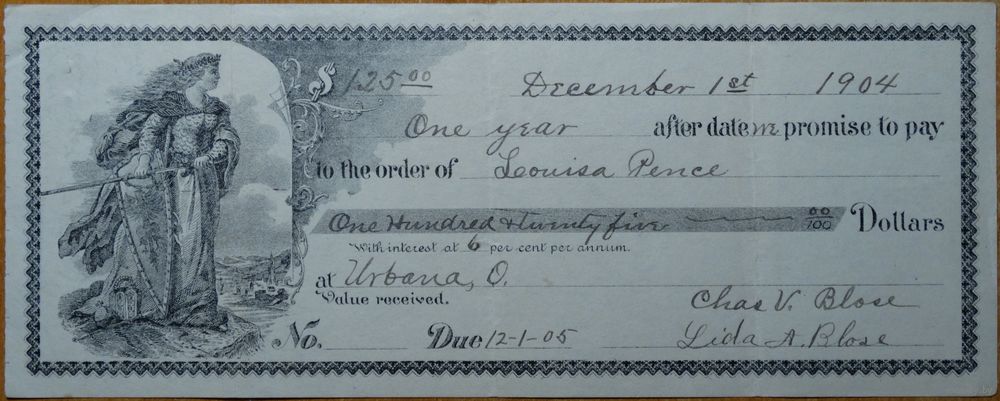 $ 125 00 December 1st 1904
One year after date we promise to pay
to the order of Leouisa Pence
One Hundred & twenty five 00/100 Dollars
With interest at 6 per cent per annum.
at Urbana, O.
Value received.
Chas V. Blose
No. Due 12-1-05 Lida A. Blose